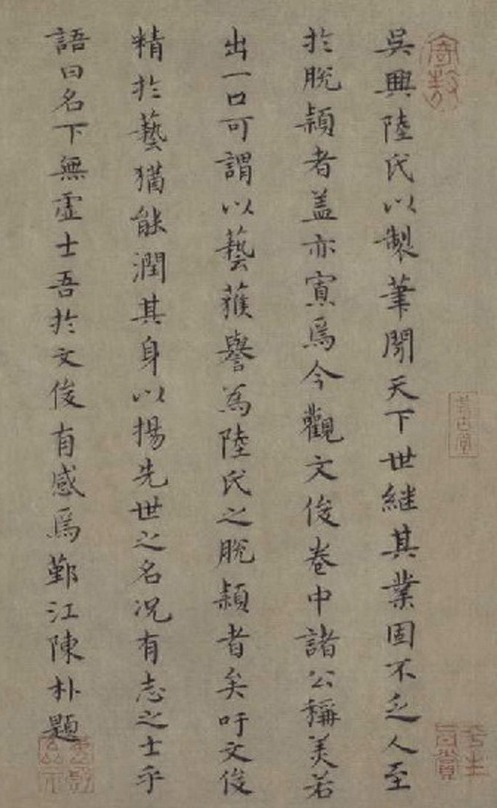 吳興陸氏以製筆聞天下世継其業固不乏人至
於脫穎者盖亦寡焉今觀文俊卷中諸公稱美若
出一口可謂以藝蒦譽為陸氏之脫穎者矣吁文俊
精於藝猶能潤其身以揚先世之名况有志之士乎
語曰名下無虛士吾於文俊有感焉鄞江陳朴題